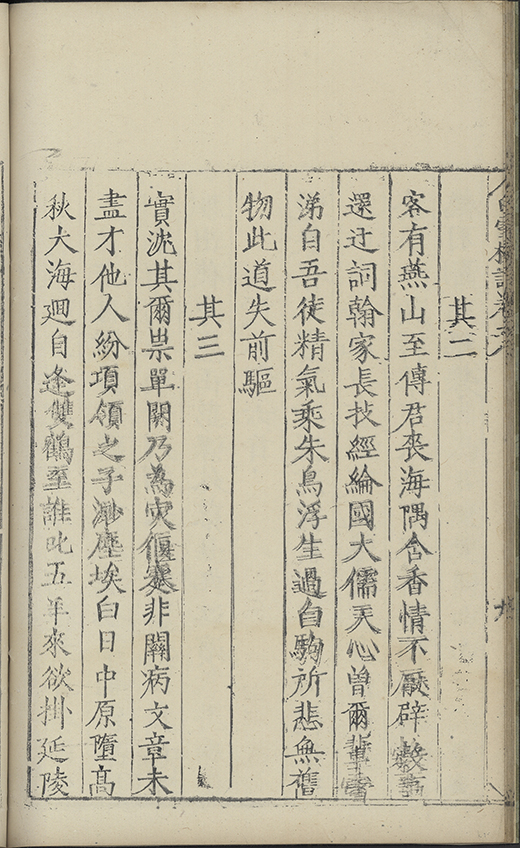 其二
客有燕山至傳君喪海隅含香情不厭辟穀事
還迂詞翰家長技經綸國大儒天心曾爾輩
涕自吾徒精氣乘朱鳥浮生過白駒所悲無舊
物此道失前驅
其三
實沈其爾祟單閼乃為灾偃蹇非關病文章未
盡才他人紛項領之子渺塵埃白日中原墮高
秋大海迴自逢雙鶴至誰叱五平來欲掛延陵